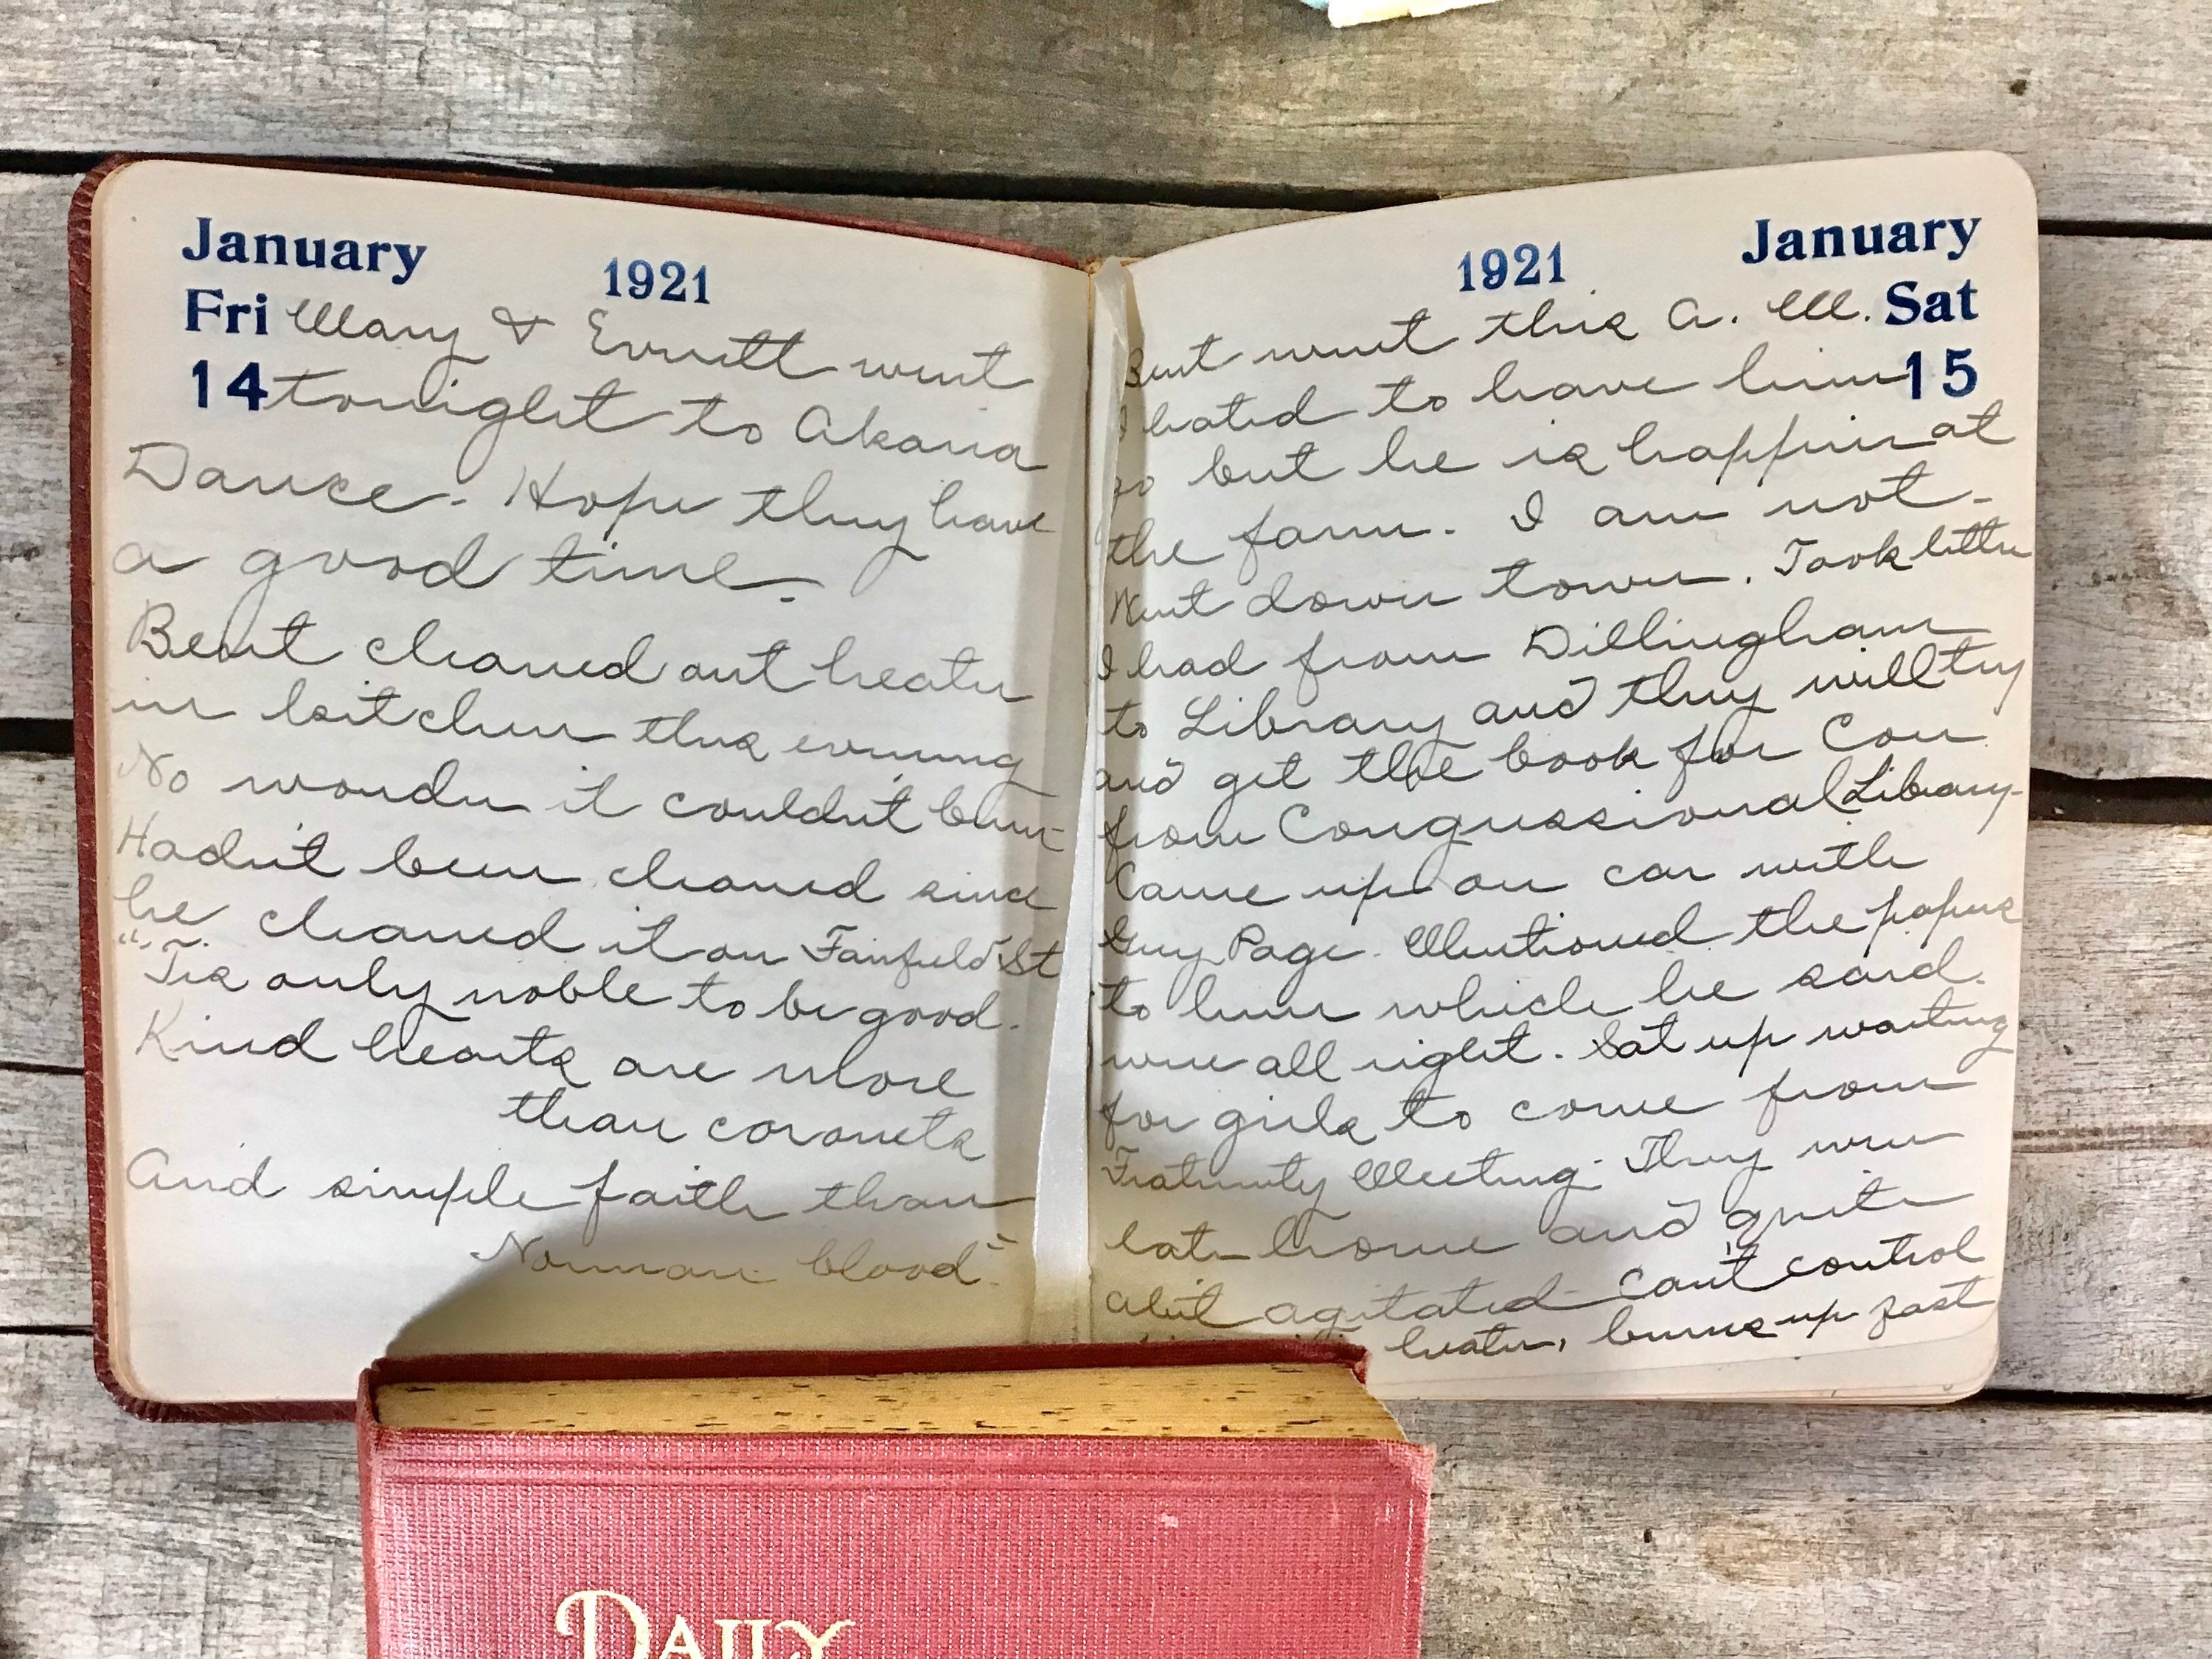 January 1921
Fri Mary & Everett went
14 tonight to Akaria
Dance - Hope they have
a good time.
Bent cleaned out heater
in kitchen this evening
No wonder it couldn't burn -
Hadn't been cleaned since
he cleaned it on Fairfield St
"Tis only noble to be good.
Kind hearts are more
than coronets
And simple faith than
Norman blood"
1921 January
Bent went this A. M. Sat
I hated to have him 15
go but he is happier at
the farm. I am not -
Went down town. Took letter
I had from Dillingham
to Library and they will try
and get the book for Con
from Congressional Library -
Came up on car with
Guy Page. Mentioned the papers
to him which he said
were all right. Sat up waiting
for girls to come from
Fraternity Meeting. They were
late home and quite
abit agitated - Can't control
heater, burns up fast
DAILY